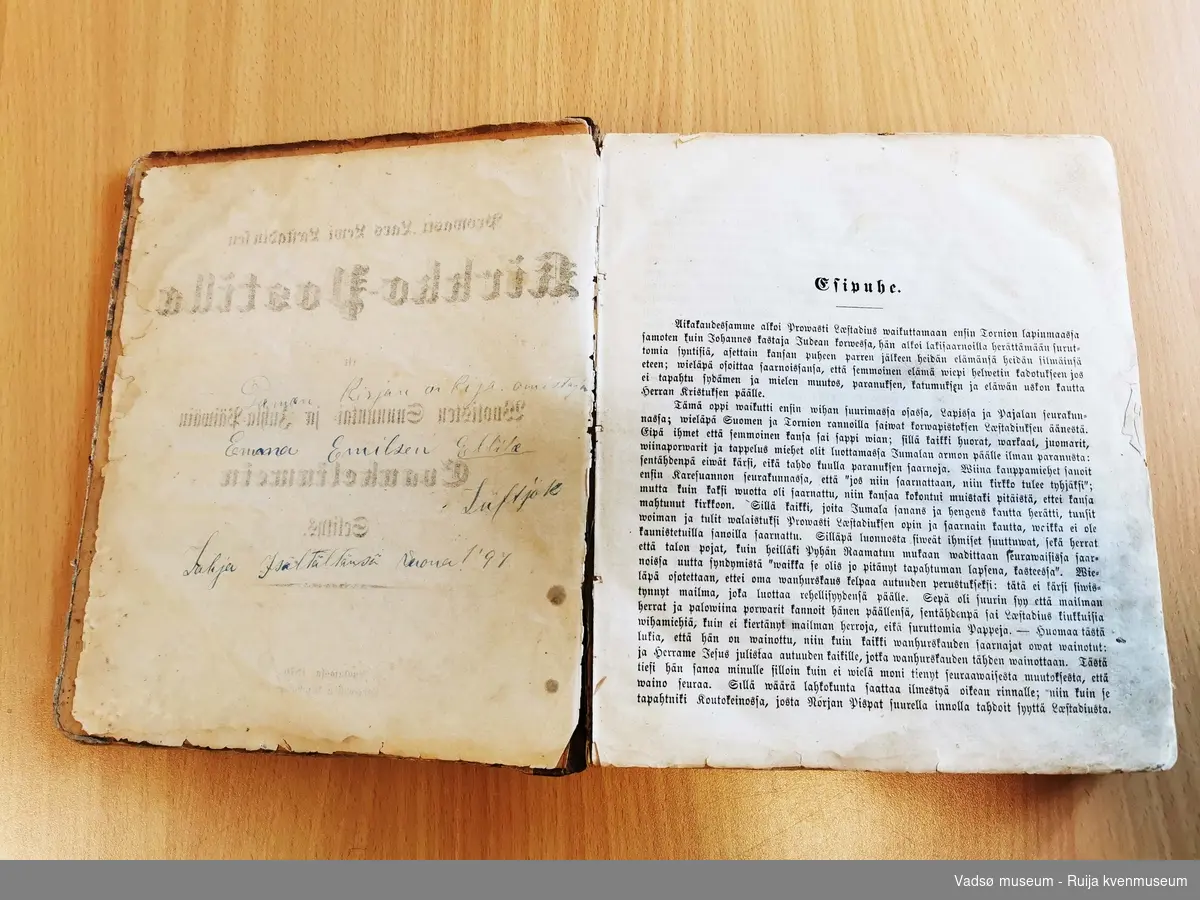 Prowasti Lars Lewi Læstadiuksen
Kirkko-Postilla
Wuotisten Sunnuntai ja Juhla-Päiwäin
Ewankeliumein
Selitys.
Tämän Kirjan oikija omistaja
Emma Emilsen Eltila
Luftjok
Lahja Isältältänsä vuona! '97
Esipuhe.
Aikakaudessamme alkoi Prowasti Læstadius waikuttamaan ensin Tornion lapinmaassa
samoten kuin Johannes kastaja Judean korwessa, hän alkoi lakisaarnoilla herättämään surut-
tomia syntisiä, asettain kansan puheen parren jälkeen heidän elämänsä heidän silmäinsä
eteen; wieläpä osoittaa saarnoisansa, että semmoinen elämä wiepi helwetin kadotukseen jos
ei tapahtu sydämen ja mielen muutos, parannuksen, katumuksen ja eläwän uskon kautta
Herran Kristuksen päälle.
Tämä oppi waikutti ensin wihan suurimassa osassa, Lapissa ja Pajalan seurakun-
nassa; wieläpä Suomen ja Tornion rannoilla saiwat korwapistoksen Læstadiuksen äänestä.
Eipä ihmet että semmoinen kansa sai sappi wian; sillä kaikki huorat, warkaat, juomarit,
wiinaporwarit ja tappelus miehet olit luottamassa Jumalan armon päälle ilman parannusta:
sentähdenpä eiwät kärsi, eikä tahdo kuulla parannuksen saarnoja. Wiina kauppamiehet sanoit
ensin Karesuannon seurakunnassa, että "jos niin saarnataan, niin kirkko tulee tyhjäksi";
mutta kuin kaksi wuotta oli saarnattu, niin kansaa kokontui muistaki pitäistä, ettei kansa
mahtunut kirkkoon. Sillä kaikki, joita Jumala sanans ja hengens kautta herätti, tunsit
woiman ja tulit walaistuksi Prowasti Læstadiuksen opin ja saarnain kautta, woikka ei ole
kaunistetuilla sanoilla saarnattu. Silläpä luonnosta siweät ihmiset suuttuwat, sekä herrat
että talon pojat, kuin heilläki Pyhän Raamatun mukaan waditaan seurawaisissa saar-
noissa uutta syndymistä "waikka se olis jo pitänyt tapahtuman lapsena, kasteessa". Wie-
läpä osotetaan, ettei oma wanhurskaus kelpaa autuuden perustukseksi: tätä ei kärsi siwis-
tynnyt mailma, joka luottaa rehellisyydensä päälle. Sepä oli suurin syy että mailman
herrat ja palowiina porwarit kannoit hänen päällensä, sentähdenpä sai Læstadius kiukkuisia
wihamiehiä, kuin ei kiertänyt mailman herroja, eikä suruttomia Pappeja. — Huomaa tästä
lukia, että hän on wainottu, niin kuin kaikki wanhurskauden saarnajat owat wainotut:
ja Herrame Jesus julistaa autuuden kaikille, jotka wanhurskauden tähden wainottaan. Tästä
tiesi hän sanoa minulle silloin kuin ei wielä moni tienyt seuraawaisesta muutoksesta, että
waino seuraa. Sillä wäärä lahkokunta saattaa ilmestyä oikean rinnalle; niin kuin se
tapahtniki Koutokeinossa, josta Norjan Pispat suurella innolla tahdoit syyttä Læstadiusta.
Vadsø museum - Ruija kvenmuseum